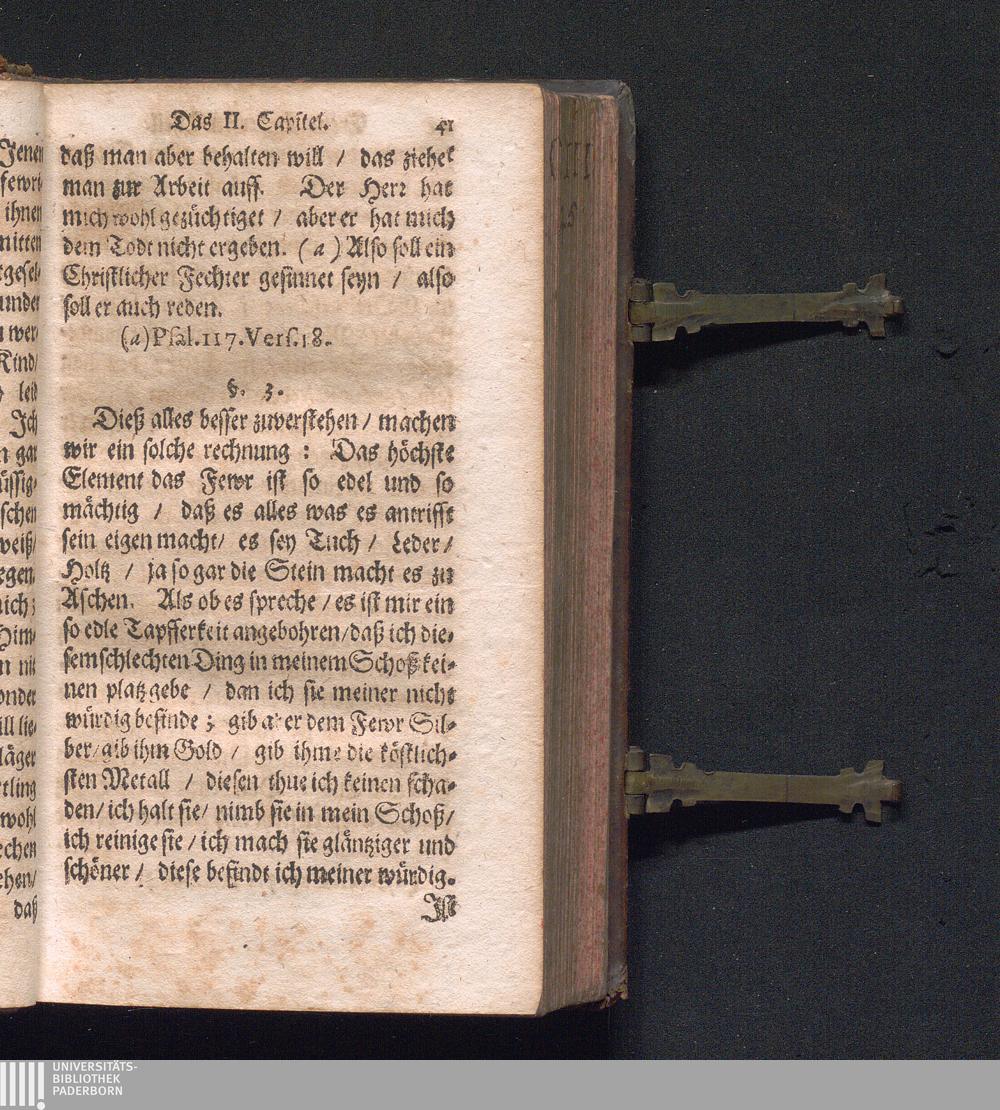 Das II. Capitel. 41
daß man aber behalten will / das ziehet
man zur Arbeit auff. Der Herr hat
mich wohl gezüchtiget / aber er hat mich
dem Todt nicht ergeben. (a) Also soll ein
Christlicher Fechter gesinnet seyn / also
soll er auch reden.
(a) Psal. 117. Vers. 18.
§. 3.
Dieß alles besser zuverstehen / machen
wir ein solche rechnung : Das höchste
Element das Fewr ist so edel und so
mächtig / daß es alles was es antrifft
sein eigen macht / es sey Tuch / Leder /
Holtz / ja so gar die Stein macht es zu
Aschen. Als ob es spreche / es ist mir ein
so edle Tapfferkeit angebohren / daß ich die-
sem schlechten Ding in meinem Schoß kei-
nen platz gebe / dan ich sie meiner nicht
würdig befinde ; gib aber dem Fewr Sil-
ber / gib ihm Gold / gib ihme die köstlich-
sten Metall / diesen thue ich keinen scha-
den / ich halt sie / nimb sie in mein Schoß /
ich reinige sie / ich mach sie gläntziger und
schöner / diese befindt ich meiner würdig.
Jenen
ihnen
mitten
Kind /
leid
Ich
weiß /
wohl
daß
UNIVERSITÄTS-
BIBLIOTHEK
PADERBORN